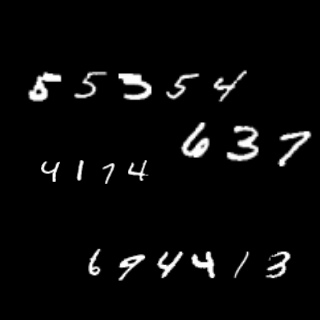 55354
637
4174
694413